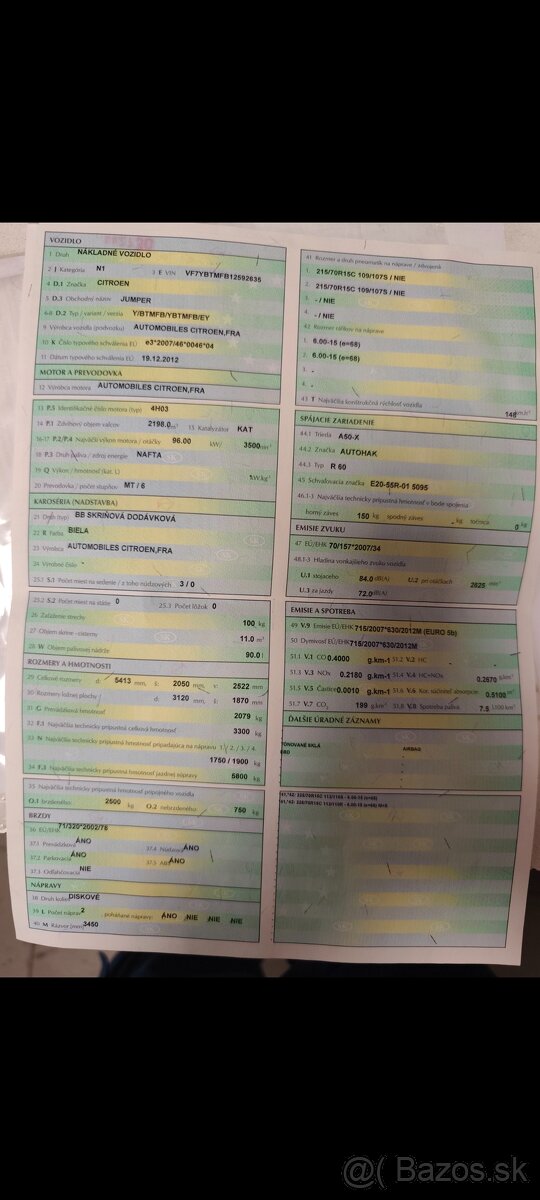 VOZIDLO
1 Druh NÁKLADNÉ VOZIDLO
2 J Kategória N1 3 E VIN VF7YBTMFB12592635
4 D.1 Značka CITROEN
5 D.3 Obchodný názov JUMPER
6-8 D.2 Typ / variant / verzia Y/BTMFB/YBTMFB/EY
9 Výrobca vozidla (podvozku) AUTOMOBILES CITROEN,FRA
10 K Číslo typového schválenia EÚ e3*2007/46*0046*04
11 Dátum typového schválenia EÚ 19.12.2012
MOTOR A PREVODOVKA
12 Výrobca motora AUTOMOBILES CITROEN,FRA
13 P.5 Identifikačné číslo motora (typ) 4H03
14 P.1 Zdvihový objem valcov 2198.0 15 Katalyzátor KAT
16-17 P.2/P.4 Najväčší výkon motora / otáčky 96.00 kW/ 3500
18 P.3 Druh paliva / zdroj energie NAFTA
19 Q Výkon / hmotnosť (kat. L) kW.kg
20 Prevodovka / počet stupňov MT / 6
KAROSÉRIA (NADSTAVBA)
21 Druh (typ) BB SKRIŇOVÁ DODÁVKOVÁ
22 R Farba BIELA
23 Výrobca AUTOMOBILES CITROEN,FRA
24 Výrobné číslo -
25.1 S.1 Počet miest na sedenie / z toho núdzových 3 / 0
25.2 S.2 Počet miest na státie 0 25.3 Počet lôžok 0
26 Zaťaženie strechy 100 kg
27 Objem skrine - cisterny 11.0 m³
28 W Objem palivovej nádrže 90.0 l
ROZMERY A HMOTNOSTI
29 Celkové rozmery d: 5413 mm, š: 2050 mm, v: 2522 mm
30 Rozmery ložnej plochy d: 3120 mm, š: 1870 mm
31 G Prevádzková hmotnosť 2079 kg
32 F.1 Najväčšia technicky prípustná celková hmotnosť 3300 kg
33 N Najväčšia technicky prípustná hmotnosť pripadajúca na nápravu 1./ 2./ 3./ 4.
1750 / 1900 kg
34 F.3 Najväčšia technicky prípustná hmotnosť jazdnej súpravy 5800 kg
35 Najväčšia technicky prípustná hmotnosť prípojného vozidla
O.1 brzdeného 2500 kg O.2 nebrzdeného 750 kg
BRZDY
36 EÚ/EHK 71/320*2002/78
37.1 Prevádzková ÁNO 37.4 Núdzová ÁNO
37.2 Parkovacia ÁNO 37.5 ABS ÁNO
37.3 Odľahčovacia NIE
NÁPRAVY
38 Druh kolies DISKOVÉ
39 L Počet náprav 2 , poháňané nápravy: ÁNO NIE NIE NIE
40 M Rázvor [mm] 3450
41 Rozmer a druh pneumatík na náprave / zdvojené
1. 215/70R15C 109/107S / NIE
2. 215/70R15C 109/107S / NIE
3. - / NIE
4. - / NIE
42 Rozmer ráfikov na náprave
1. 6.00-15 (e=68)
2. 6.00-15 (e=68)
3. -
4. -
43 T Najväčšia konštrukčná rýchlosť vozidla 148 km.h⁻¹
SPÁJACIE ZARIADENIE
44.1 Trieda A50-X
44.2 Značka AUTOHAK
44.3 Typ R 60
45 Schvaľovacia značka E20-55R-01 5095
46.1-3 Najväčšia technicky prípustná hmotnosť v bode spojenia
horný záves 150 kg spodný záves - kg točnica 0 kg
EMISIE ZVUKU
47 EÚ/EHK 70/157*2007/34
48.1-3 Hladina vonkajšieho zvuku vozidla
U.1 stojaceho 84.0 dB(A) U.2 pri otáčkach 2625 min⁻¹
U.3 za jazdy 72.0 dB(A)
EMISIE A SPOTREBA
49 V.9 Emisie EÚ/EHK 715/2007*630/2012M (EURO 5b)
50 Dymivosť EÚ/EHK 715/2007*630/2012M
51.1 V.1 CO 0.4000 g.km-1 51.2 V.2 HC
51.3 V.3 NOx 0.2180 g.km-1 51.4 V.4 HC+NOx 0.2670 g.km⁻¹
51.5 V.5 Častice 0.0010 g.km-1 51.6 V.6 Kor. súčiniteľ absorpcie 0.5100 m⁻¹
51.7 V.7 CO₂ 199 g.km⁻¹ 51.8 V.8 Spotreba paliva 7.5 l.100 km⁻¹
ĎALŠIE ÚRADNÉ ZÁZNAMY
TÓNOVANÉ SKLÁ AIRBAG
EBD
@( Bazos.sk